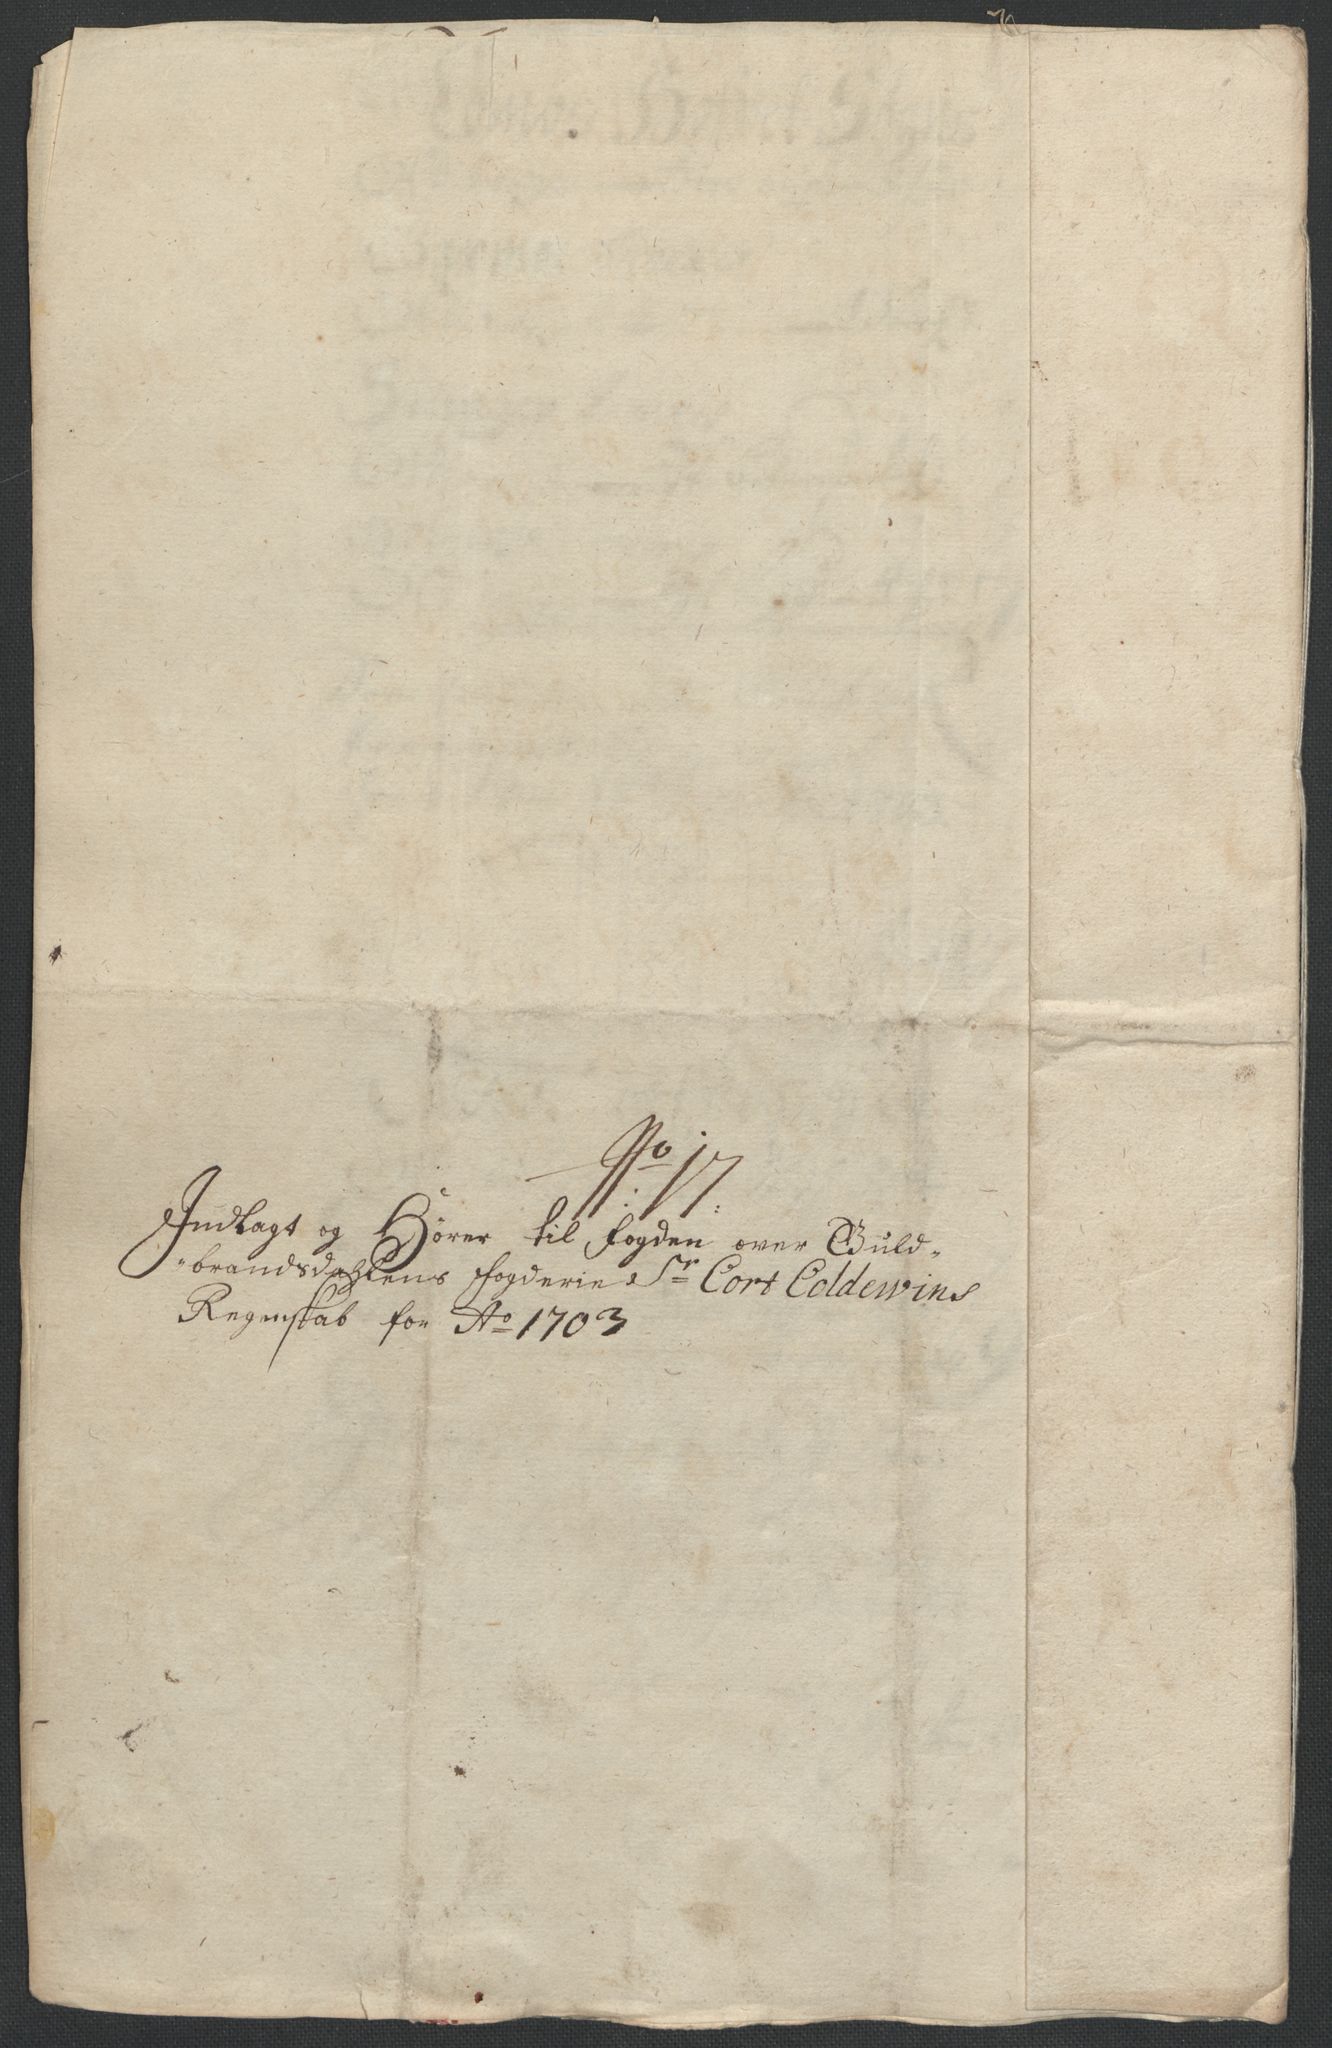 No 17.
Indlagt og Hörer til fogden over Guld-
-brandsdahlens fogderie Sr Cort Coldewins
Regenskab for Ao 1703